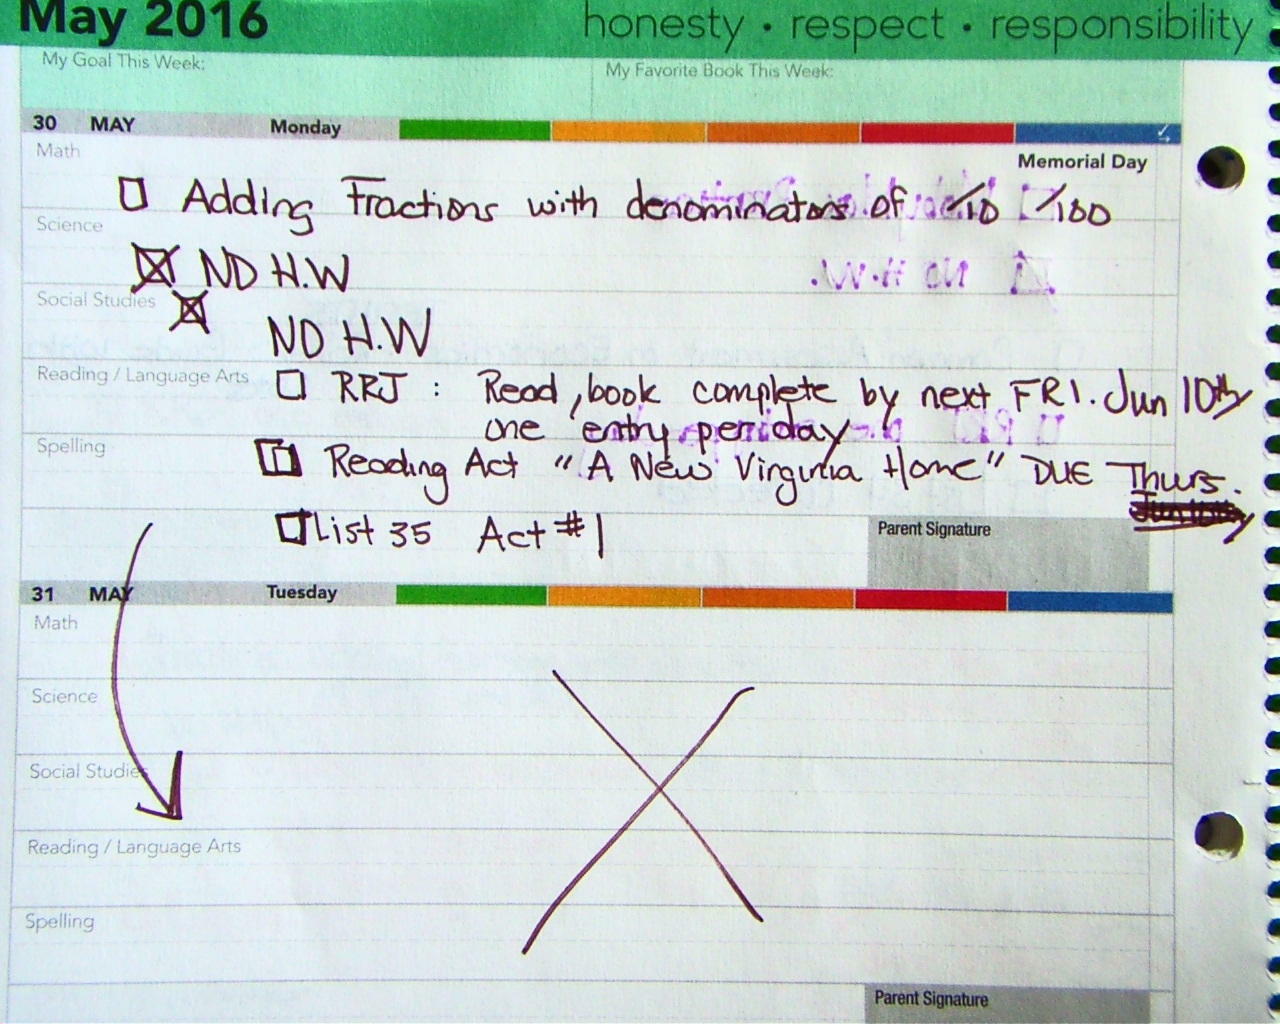 May 2016 honesty • respect • responsibility
My Goal This Week: My Favorite Book This Week:
30 MAY Monday
Math Memorial Day
Adding Fractions with denominators of /10 /100
Science
NO H.W
Social Studies
NO H.W
Reading / Language Arts RRJ : Read, book complete by next FRI. Jun 10th
one entry per day
Spelling
Reading Act "A New Virginia Home" DUE Thurs.
Parent Signature
List 35 Act #1
31 MAY Tuesday
Math
Science
Social Studies
Reading / Language Arts
Spelling
Parent Signature